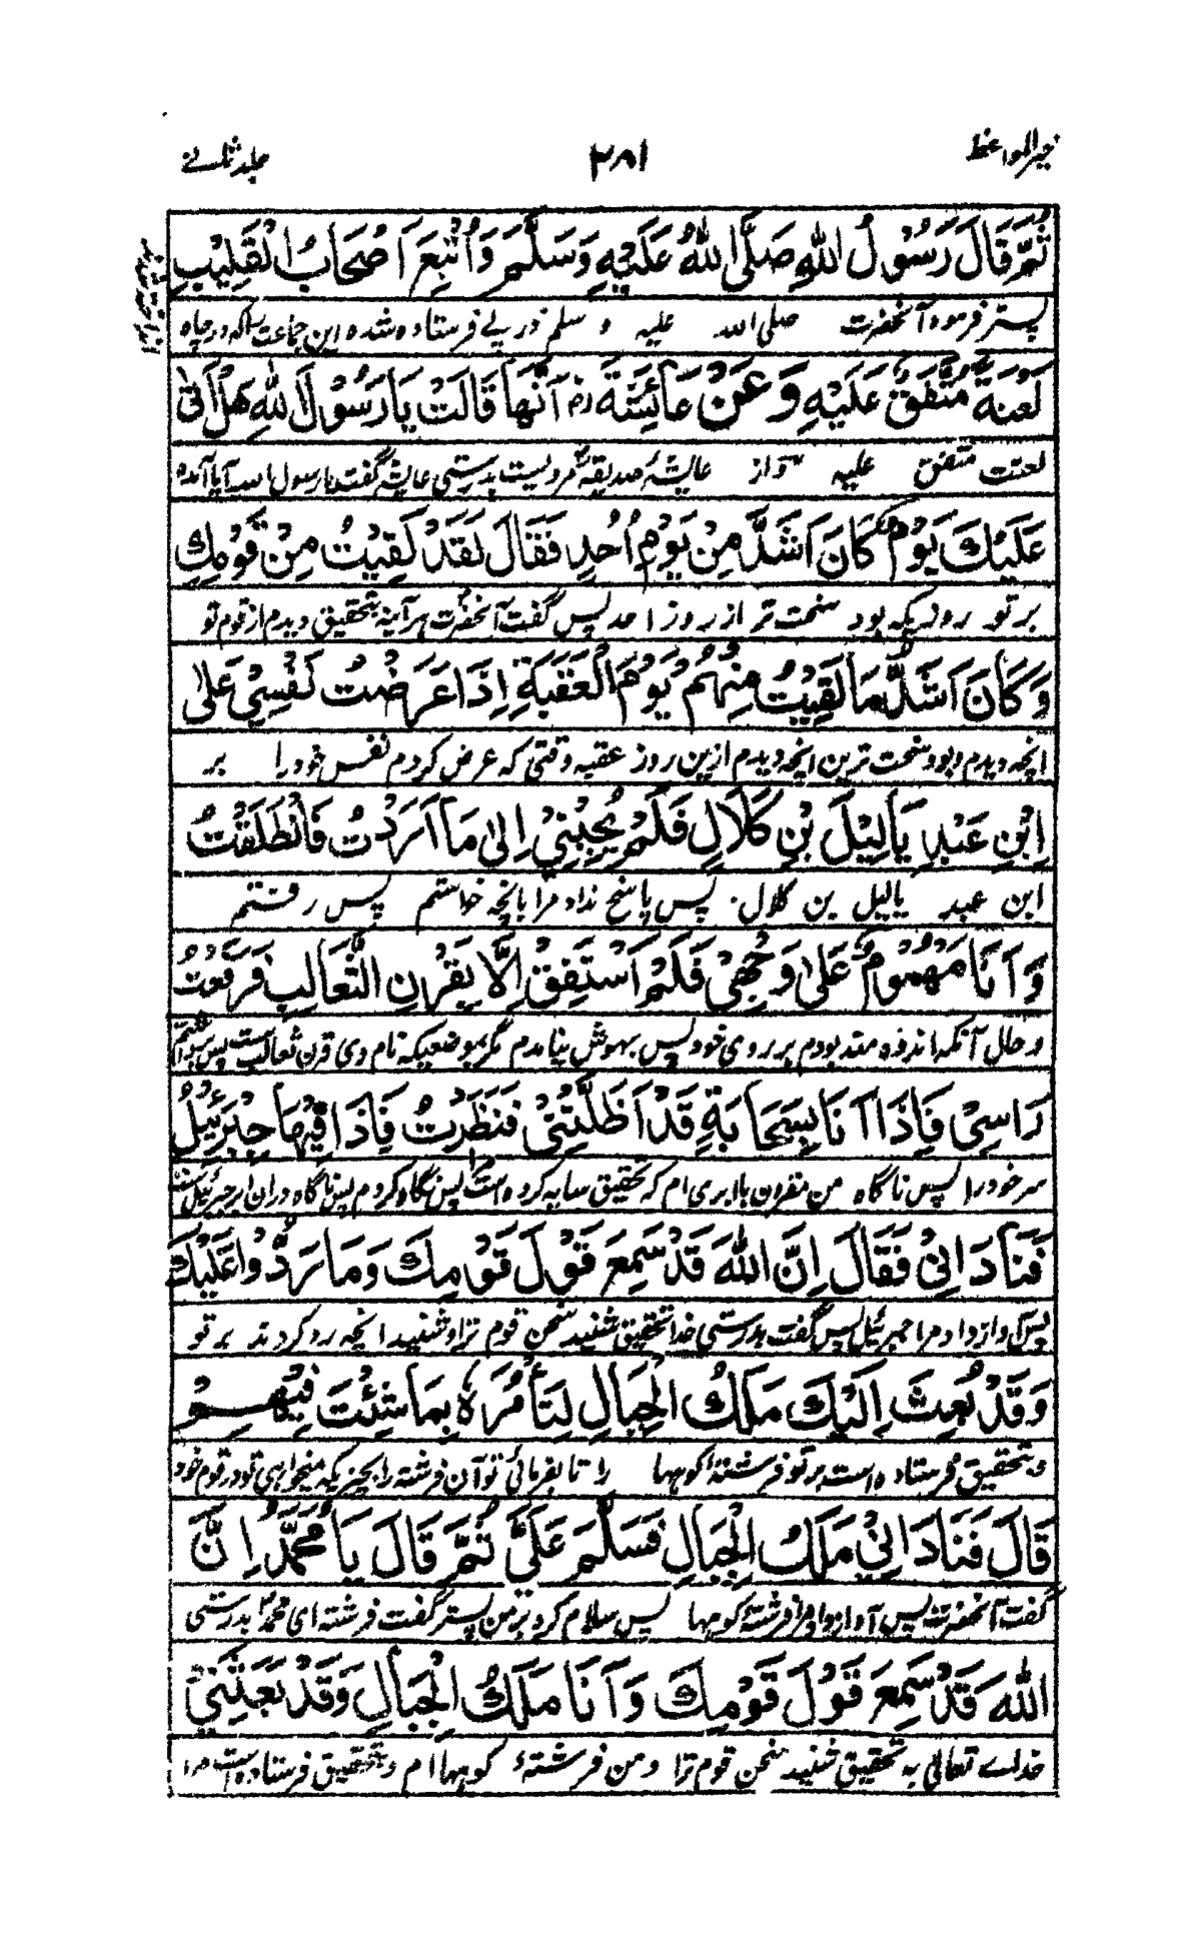 خیر المواعظ ۲۸۱ جلد ثانی
ثُمَّ قَالَ رَسُوْلُ اللهِ صَلَّى اللهُ عَلَيْهِ وَسَلَّمَ وَاُتْبِعَ اَصْحَابُ الْقَلِيْبِ
پستر فرمود آنحضرت صلی الله علیه و سلم در پی فرستاده شده این جماعت را که در چاه
لَعْنَةً مُتَّفَقٌ عَلَيْهِ وَعَنْ عَائِشَةَ رض اَنَّهَا قَالَتْ يَا رَسُوْلَ اللهِ هَلْ اَتٰى
لعنت متفق علیه و از عایشه صدیقه مرویست بدرستی عایشه گفت یا رسول الله آیا آمده
عَلَيْكَ يَوْمٌ كَانَ اَشَدَّ مِنْ يَوْمِ اُحُدٍ فَقَالَ لَقَدْ لَقِيْتُ مِنْ قَوْمِكِ
بر تو روزیکه بود سخت تر از روز احد پس گفت آنحضرت هر آینه بتحقیق دیدم از قوم تو
وَكَانَ اَشَدَّ مَا لَقِيْتُ مِنْهُمْ يَوْمَ الْعَقَبَةِ اِذَا عَرَضْتُ نَفْسِيْ عَلٰى
انچه دیدم و بود سخت ترین انچه دیدم ازین روز عقبه وقتی که عرض کردم نفس خود را بر
اِبْنِ عَبْدِ يَالِيْلَ بْنِ كَلَالٍ فَلَمْ يُجِبْنِيْ اِلٰى مَا اَرَدْتُ فَانْطَلَقْتُ
ابن عبد یالیل بن کلال پس پاسخ نداد مرا بانچه خواستم پس رفتم
وَاَنَا مَهْمُوْمٌ عَلٰى وَجْهِيْ فَلَمْ اَسْتَفِقْ اِلَّا بِقَرْنِ الثَّعَالِبِ فَرَفَعْتُ
و حال آنکه اندوه مند بودم بر روی خود پس بهوش نیامدم مگر بموضعیکه نام وی قرن ثعالب است پس برداشتم
رَاسِيْ فَاِذَا اَنَا بِسَحَابَةٍ قَدْ اَظَلَّتْنِيْ فَنَظَرْتُ فَاِذَا فِيْهَا جِبْرَئِيْلُ
سر خود را پس ناگاه من مقرون بابری ام که تحقیق سایه کرده است پس نگاه کردم پس ناگاه دران ابر جبرئیل است
فَنَادَانِيْ فَقَالَ اِنَّ اللهَ قَدْ سَمِعَ قَوْلَ قَوْمِكَ وَمَا رَدُّوْا عَلَيْكَ
پس آواز داد مرا جبرئیل پس گفت بدرستی خدا تحقیق شنید سخن قوم ترا و شنید انچه رد کردند بر تو
وَقَدْ بُعِثَ اِلَيْكَ مَلَكُ الْجِبَالِ لِتَأْمُرَهُ بِمَا شِئْتَ فِيْهِمْ
و تحقیق فرستاده است بر تو فرشتهٔ کوهها را تا بفرمائی تو آن فرشته را بچیزیکه میخواهی تو در قوم خود
قَالَ فَنَادَانِيْ مَلَكُ الْجِبَالِ فَسَلَّمَ عَلَيَّ ثُمَّ قَالَ يَا مُحَمَّدُ اِنَّ
گفت آنحضرت پس آواز داد مرا فرشتهٔ کوهها پس سلام کرد بر من پستر گفت فرشته ای محمد بدرستی
اللهَ قَدْ سَمِعَ قَوْلَ قَوْمِكَ وَاَنَا مَلَكُ الْجِبَالِ وَقَدْ بَعَثَنِيْ
خدای تعالی به تحقیق شنید سخن قوم ترا و من فرشتهٔ کوهها ام و تحقیق فرستاده است مرا